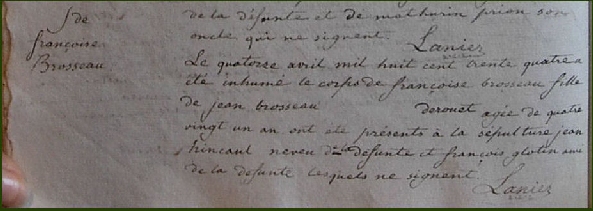 de la defunte et de mathurin prion son
oncle qui ne signent.
Lanier
S de
françoise
Brosseau
Le quatorze avril mil huit cent trente quatre a
été inhumé le corps de françoise brosseau fille
de jean brosseau derouet agée de quatre
vingt un an ont été présents à la sépulture jean
hincaul neveu de la defunte et françois glotin ami
de la defunte lesquels ne signent
Lanier